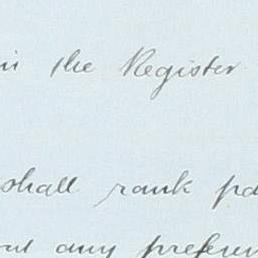 in the Register
shall rank pa
out any preferen